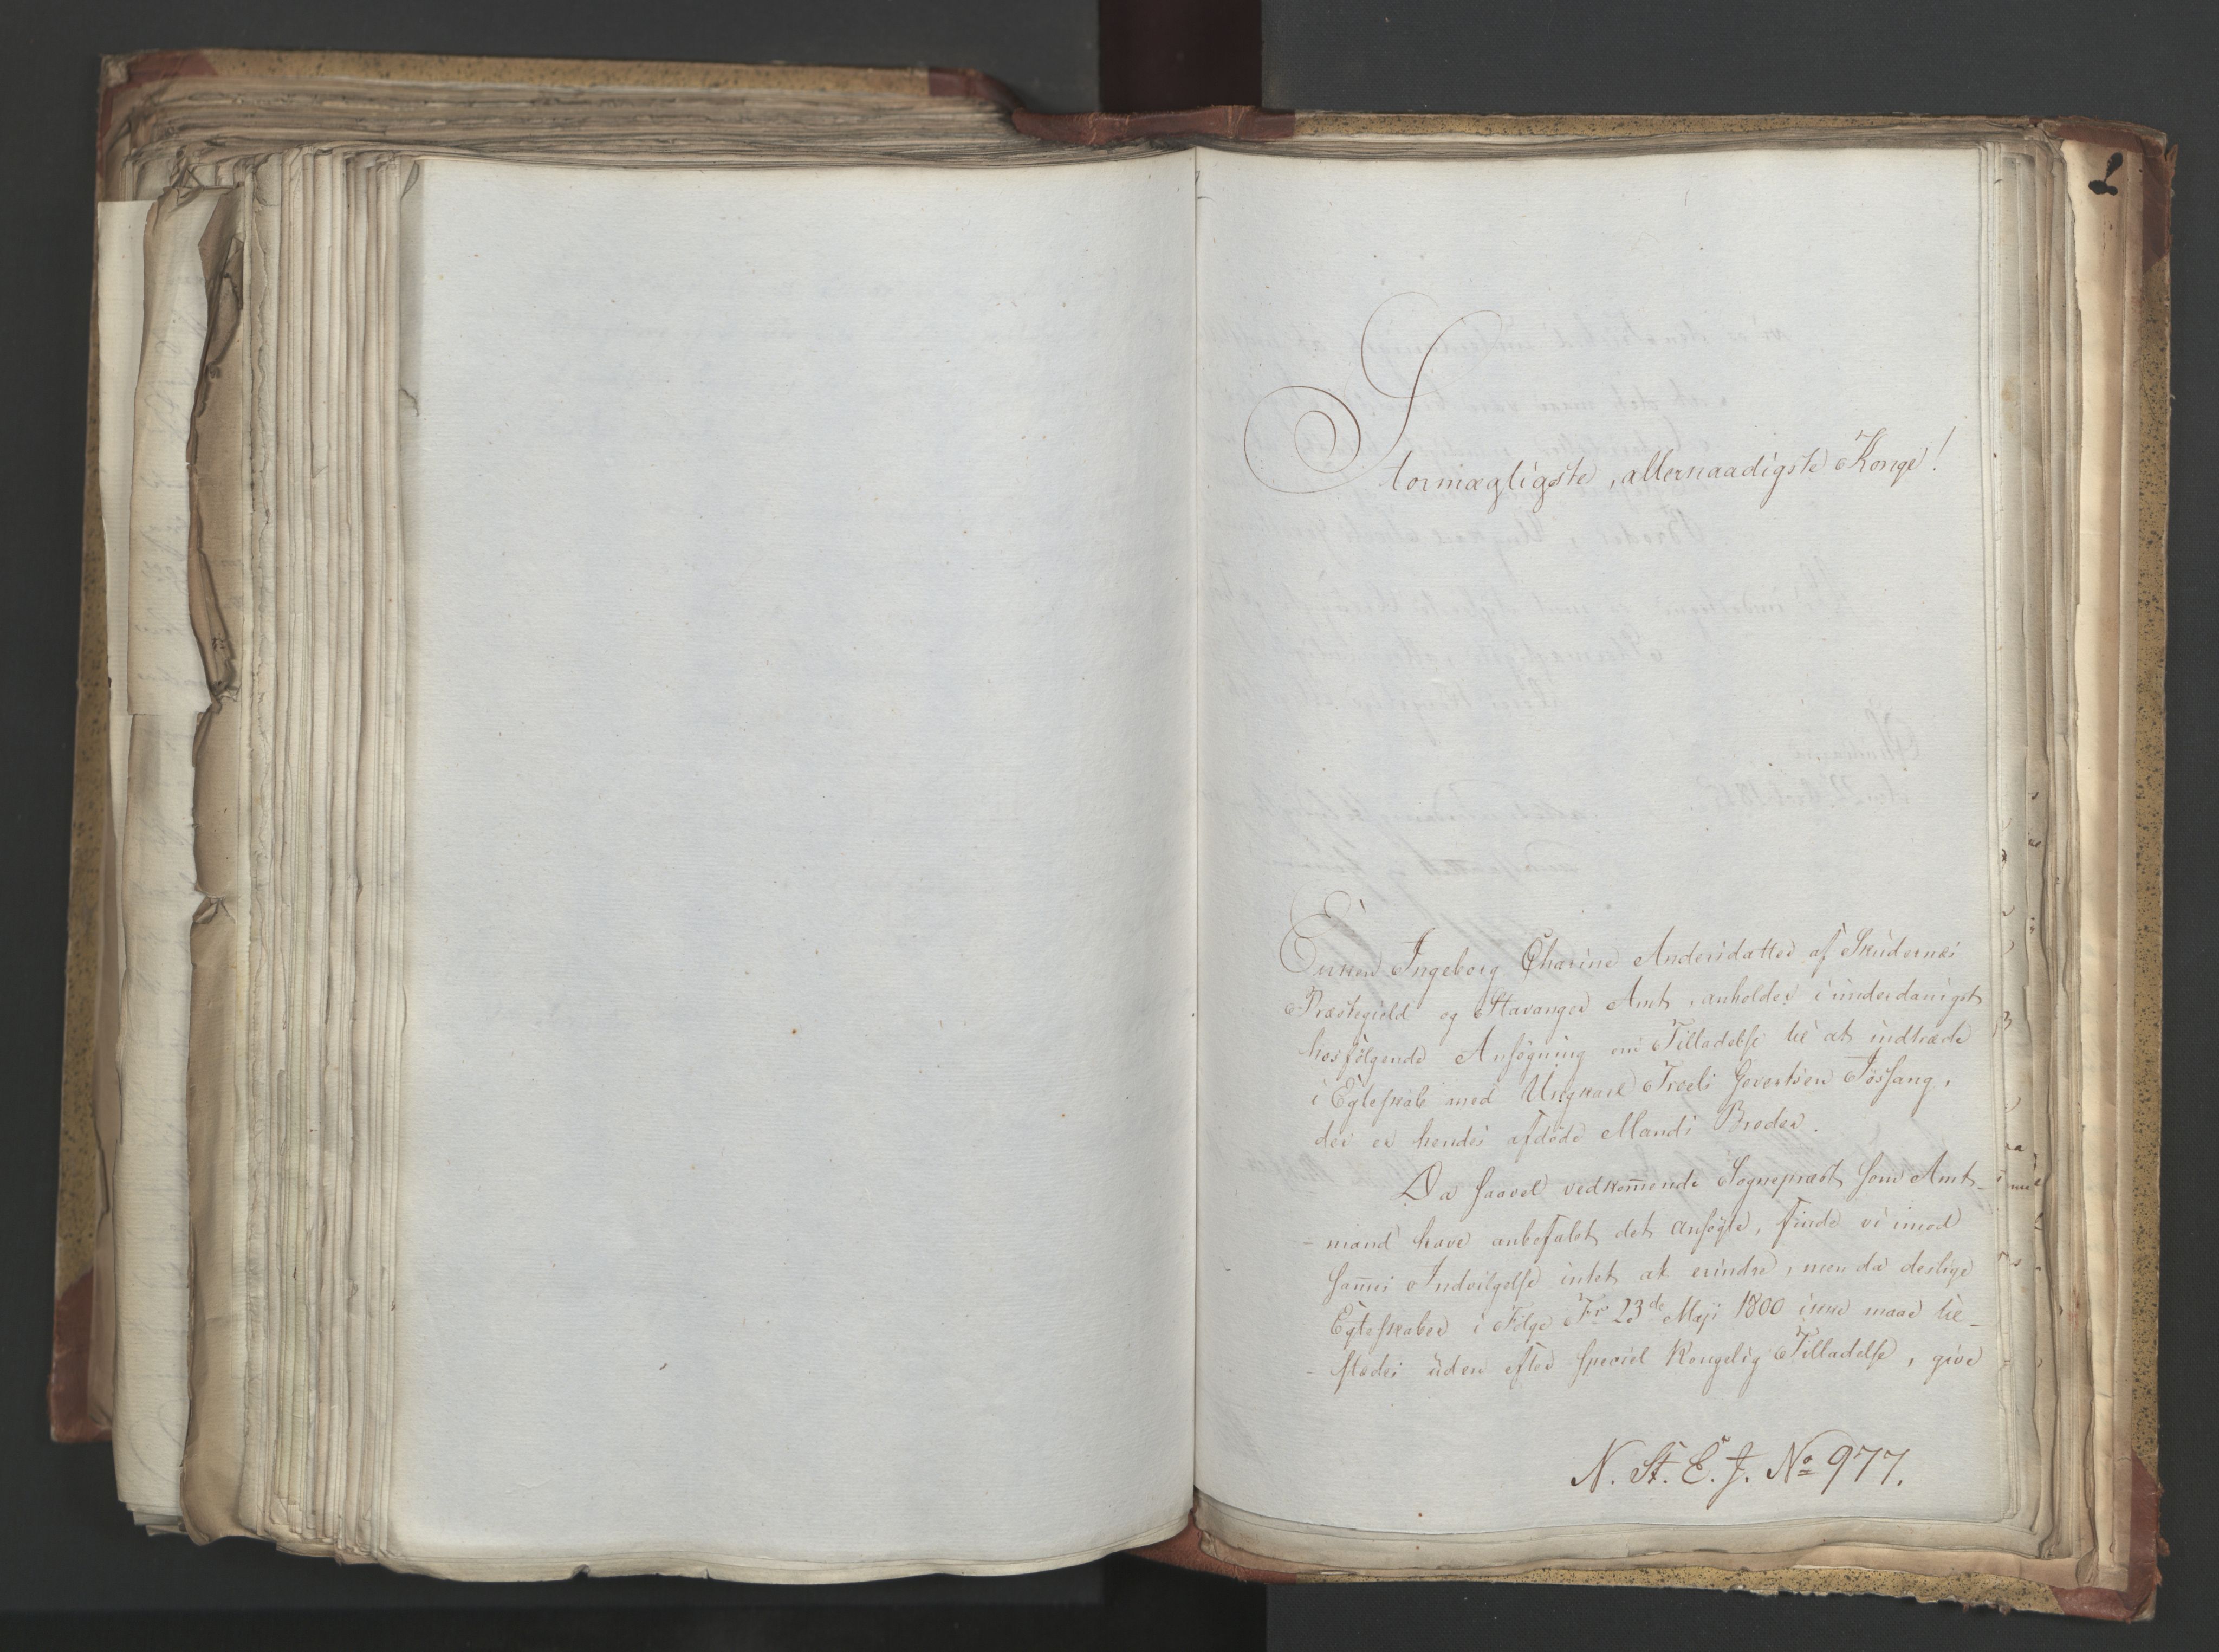 Stormægtigste, allernaadigste Konge!
Enken Ingeborg Charine Andersdatter af Skudesnes
Præstegield og Stavanger Amt, anholder i underdanigst
hosfølgende Ansøgning om Tilladelse til at indtræde
i Egteskab med Ungkarl Troels Govertsen
der er hendes afdøde Mands Broder.
Da saavel vedkom̅ende Sognepræst som Amt-
- mand have anbefalet det Ansøgte, finde vi imod
sam̅es Indvilgelse intet at erindre, men da deslige
Egteskaber i Følge Fr. 23de Maji 1800 ikke maae til-
- stedes uden efter speciel Kongelig Tilladelse, give
N. St. E. J. No 977.